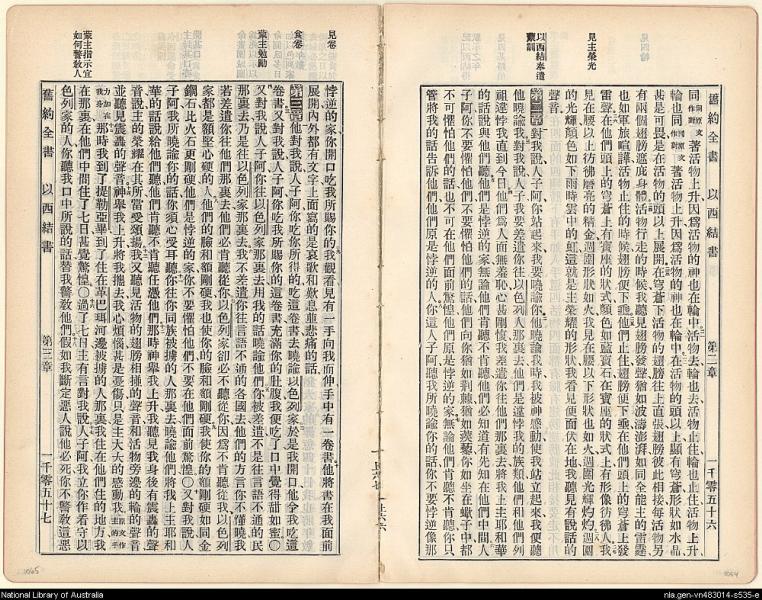 舊約全書 以西結書 第二章 一千零五十六
見主榮光
以西結奉遣
著活物上升因爲活物的神也在輪中活物去輪也去活物止住輪也止住活物上升
輪也同著活物上升因爲活物的神也在輪中在活物的頭以上顯有穹蒼形狀如水晶
甚是可畏是在活物的頭以上展開在穹蒼下活物的翅膀往上直張翅膀彼此相接每活物另
有兩個翅膀遮庇身體活物行走的時候我聽見翅膀發聲猶如波濤澎湃如同全能主的雷霆
也如軍旅喧譁活物止住的時候翅膀便下垂他們止住翅膀便下垂在他們頭上的穹蒼上發
雷聲在他們頭上的穹蒼上有寶座的狀式顏色如藍寶石在寶座的狀式上有形像彷彿人我
見在腰以上彷彿磨亮的精金週圍形狀如火我見在腰以下形狀也如火週圍光輝灼灼週圍
的光輝顏色如下雨時雲中的虹這就是主榮耀的形狀我看見便面伏在地我聽見有說話的
聲音
第二章 對我說人子阿你站起來我要曉諭你他曉諭我時我被神感動使我站立起來我便聽
他曉諭我對我說人子我要差遣你往以色列人那裏去他們是違悖我的族類他們和他們列
祖違悖我直到今日他們爲人面無羞恥心甚剛愎我差遣你往他們那裏去將我主耶和華
的話說與他們聽他們是悖逆的家無論他們肯聽不肯聽他們必知道有先知在他們中間人
子阿你不要懼怕他們不要懼怕他們的話他們向你猶如荆棘如蒺藜你如坐在蠍子中都
不可懼怕他們的話也不可在他們面前驚惶他們原是悖逆的家無論他們肯聽不肯聽你只
管將我的話告訴他們他們原是悖逆的人你這人子阿聽我所曉諭你的話你不要悖逆像那
見卷
食卷
蒙主勉勵
蒙主指示宜
如何警敎人
悖逆的家你開口吃我所賜你的我觀看見有一手向我而伸手中有一卷書他將書在我面前
展開內外都有文字上面寫的是哀歌和歎息並悲痛的話
第三章 他對我說人子阿你吃你所得的吃這卷書去曉諭以色列家於是我開口他令我吃這
卷書又對我說人子阿你吃我所賜你的這卷書充滿你的肚腹我便吃了口中覺得甜如蜜○
又對我說人子阿你往以色列家那裏去用我的話曉諭他們你被差遣不是往言語不通的民
那裏去乃是往以色列家那裏去我不差遣你往言語不通的各國去他們的方言你不懂曉我
若差遣你往他們那裏去他們必肯聽從你以色列家卻必不聽從你因爲不肯聽從我以色列
家都是額堅心硬的人他們的臉和額剛硬我也使你的臉和額剛硬我使你的額剛硬如同金
鋼石比火石更剛硬他們是悖逆的家你不要懼怕他們不要在他們面前驚惶○又對我說人
子阿我所曉諭你的話你須心受耳聽你往你同族被擄的人那裏去曉諭他們將我主耶和
華的話說給他們聽他們肯聽不肯聽任憑他們那時神舉我上升我聽見我身後有震轟的聲
音說主的榮耀在其所當受頌揚我又聽見活物的翅膀相撞的聲音和活物旁邊的輪的聲音
並聽見震轟的聲音神舉我上升將我攜去我心煩惱甚是憂傷只是主大大的感動我
那時我到了提勒亞畢到了住在革巴珥河邊被擄的人那裏我住在他們住的地方我
在那裏在他們中間住了七日甚覺驚惶○過了七日主有言對我說人子阿我立你作看守以
色列家的人你聽我口中所說的話替我警敎他們假如我斷定惡人說他必死你不警敎這惡
舊約全書 以西結書 第三章 一千零五十七
National Library of Australia
nla.gen-vn483014-s535-e